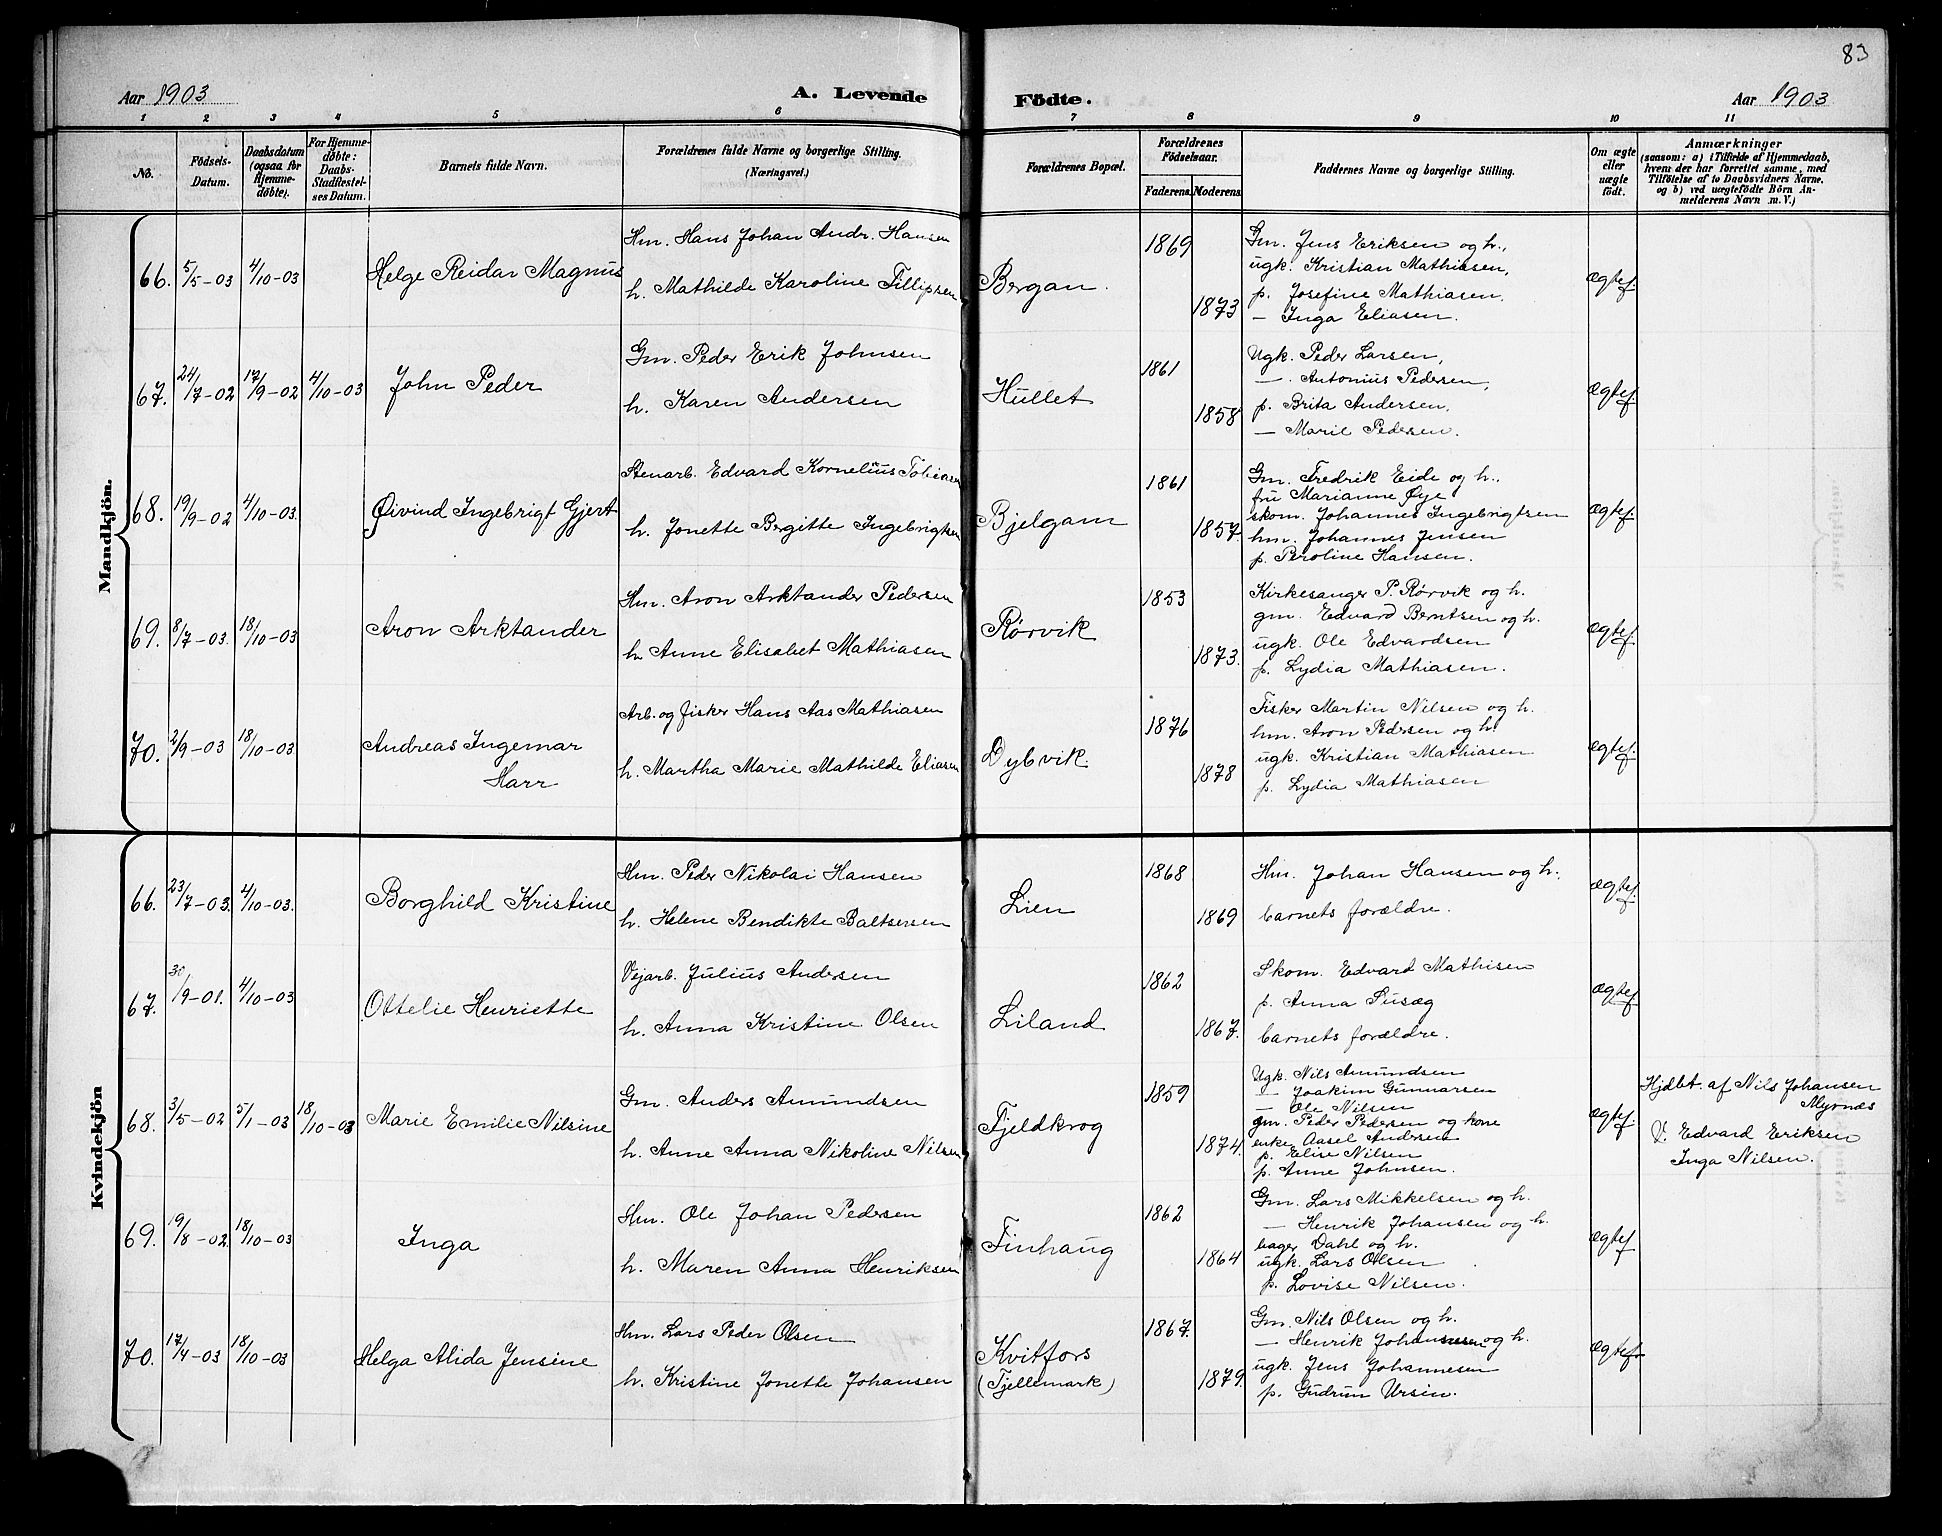 83
Aar 1903
A. Levende Födte.
Aar 1903
1 2 3 4 5 6 7 8 9 10 11
No.
Födsels-Datum.
Daabsdatum (ogsaa for Hjemme-döbte).
For Hjemme-döbte: Daabs-Stadfæstel-ses Datum.
Barnets fulde Navn.
Forældrenes fulde Navne og borgerlige Stilling. (Næringsvei.)
Forældrenes Bopæl.
Forældrenes Födselsaar.
Faderens. Moderens.
Faddernes Navne og borgerlige Stilling.
Om ægte eller uægte födt.
Anmærkninger
(saasom: a) i Tilfælde af Hjemmedaab,
hvem der har forrettet samme, med
Tilföielse af to Daabsvidners Navne,
og b) ved uægtefödte Börn An-
melderens Navn m. V.)
Mandkjön.
66. 5/5-03 4/10-03 Helge Reidar Magnus
Hm. Hans Johan Andr. Hansen
h. Mathilde Karoline Fillipsen
Bergan. 1869 1873
Gm. Jens Eriksen og h.,
ugk. Kristian Mathiasen,
p. Josefine Mathiasen,
— Inga Eliasen.
ægtef.
67. 24/7-02 17/9-02 4/10-03 John Peder
Gm. Peder Erik Johnsen
h. Karen Andersen
Hullet 1861 1858
Ugk. Peder Larsen,
—. Antonius Pedersen,
p. Brita Andersen,
— Marie Pedersen.
ægtef.
68. 19/9-02 4/10-03. Øivind Ingebrigt Gjert
Stenarb. Edvard Kornelius Tobiasen
h. Jonette Bergitte Ingebrigtsen
Bjelgam 1861 1857
Gm. Fredrik Eide og h.,
fru Marianne Øye
skom. Johannes Ingebrigtsen
hm. Johannes Jensen
p. Peroline Hansen.
ægtef.
69. 8/7-03. 18/10-03 Aron Arktander
Hm. Aron Arktander Pedersen
h. Anne Elisabet Mathiasen
Rørvik 1853 1873.
Kirkesanger P. Rørvik og h.
gm. Edvard Berntsen og h.
ugk. Ole Edvardsen
p. Lydia Mathiasen.
ægtef.
70. 2/9-03 18/10-03 Andreas Ingemar
Harr
Arb. og fisker Hans Aas Mathiasen
h. Martha Marie Mathilde Eliasen
Dybvik. 1876 1878
Fisker Martin Nilsen og h.
hm. Aron Pedersen og h.
ugk. Kristian Mathiasen
p. Lydia Mathiasen
ægtef.
Kvindekjön
66. 23/7-03. 4/10-03. Borghild Kristine
Hm. Peder Nikolai Hansen
h. Helene Bendikte Baltsersen
Lien 1868 1869
Hm. Johan Hansen og h.
barnets forældre.
ægtef.
67. 30/9-01. 4/10-03 Ottelie Henriette
Vejarb. Julius Andersen
h. Anna Kristine Olsen
Liland 1862 1867.
Skom. Edvard Mathisen
p. Anna Susæg
barnets forældre.
ægtef.
68. 3/5-02 5/1-03 18/10-03 Marie Emilie Nilsine
Gm. Anders Amundsen
h. Anne Anna Nikoline Nilsen
Fjeldkrog 1859 1874.
Ugk. Nils Amundsen
— Joakim Gunnarsen
— Ole Nilsen
gm. Peder Pedersen og kone
enke Aasel Andersen
p. Elise Nilsen
p. Anne Johnsen.
ægtef.
Hjdbt. af Nils Johansen
Myrnes
V. Edvard Eriksen
Inga Nilsen.
69. 19/8-02. 18/10-03 Inga
Hm. Ole Johan Pedersen
h. Maren Anna Henriksen
Finhaug 1862 1864
Gm. Lars Mikkelsen og h.
— Henrik Johansen og h.
bager Dahl og h.
ugk. Lars Olsen
p. Lovise Nilsen.
ægtef
70. 17/4-03 18/10-03 Helga Alida Jensine
Hm. Lars Peder Olsen
h. Kristine Jonette Johansen
Kvitfors
(Fjellemark) 1867. 1879.
Gm. Nils Olsen og h.
— Henrik Johansen og h.
ugk. Jens Johannesen
p. Gudrun Ursin.
ægtef.